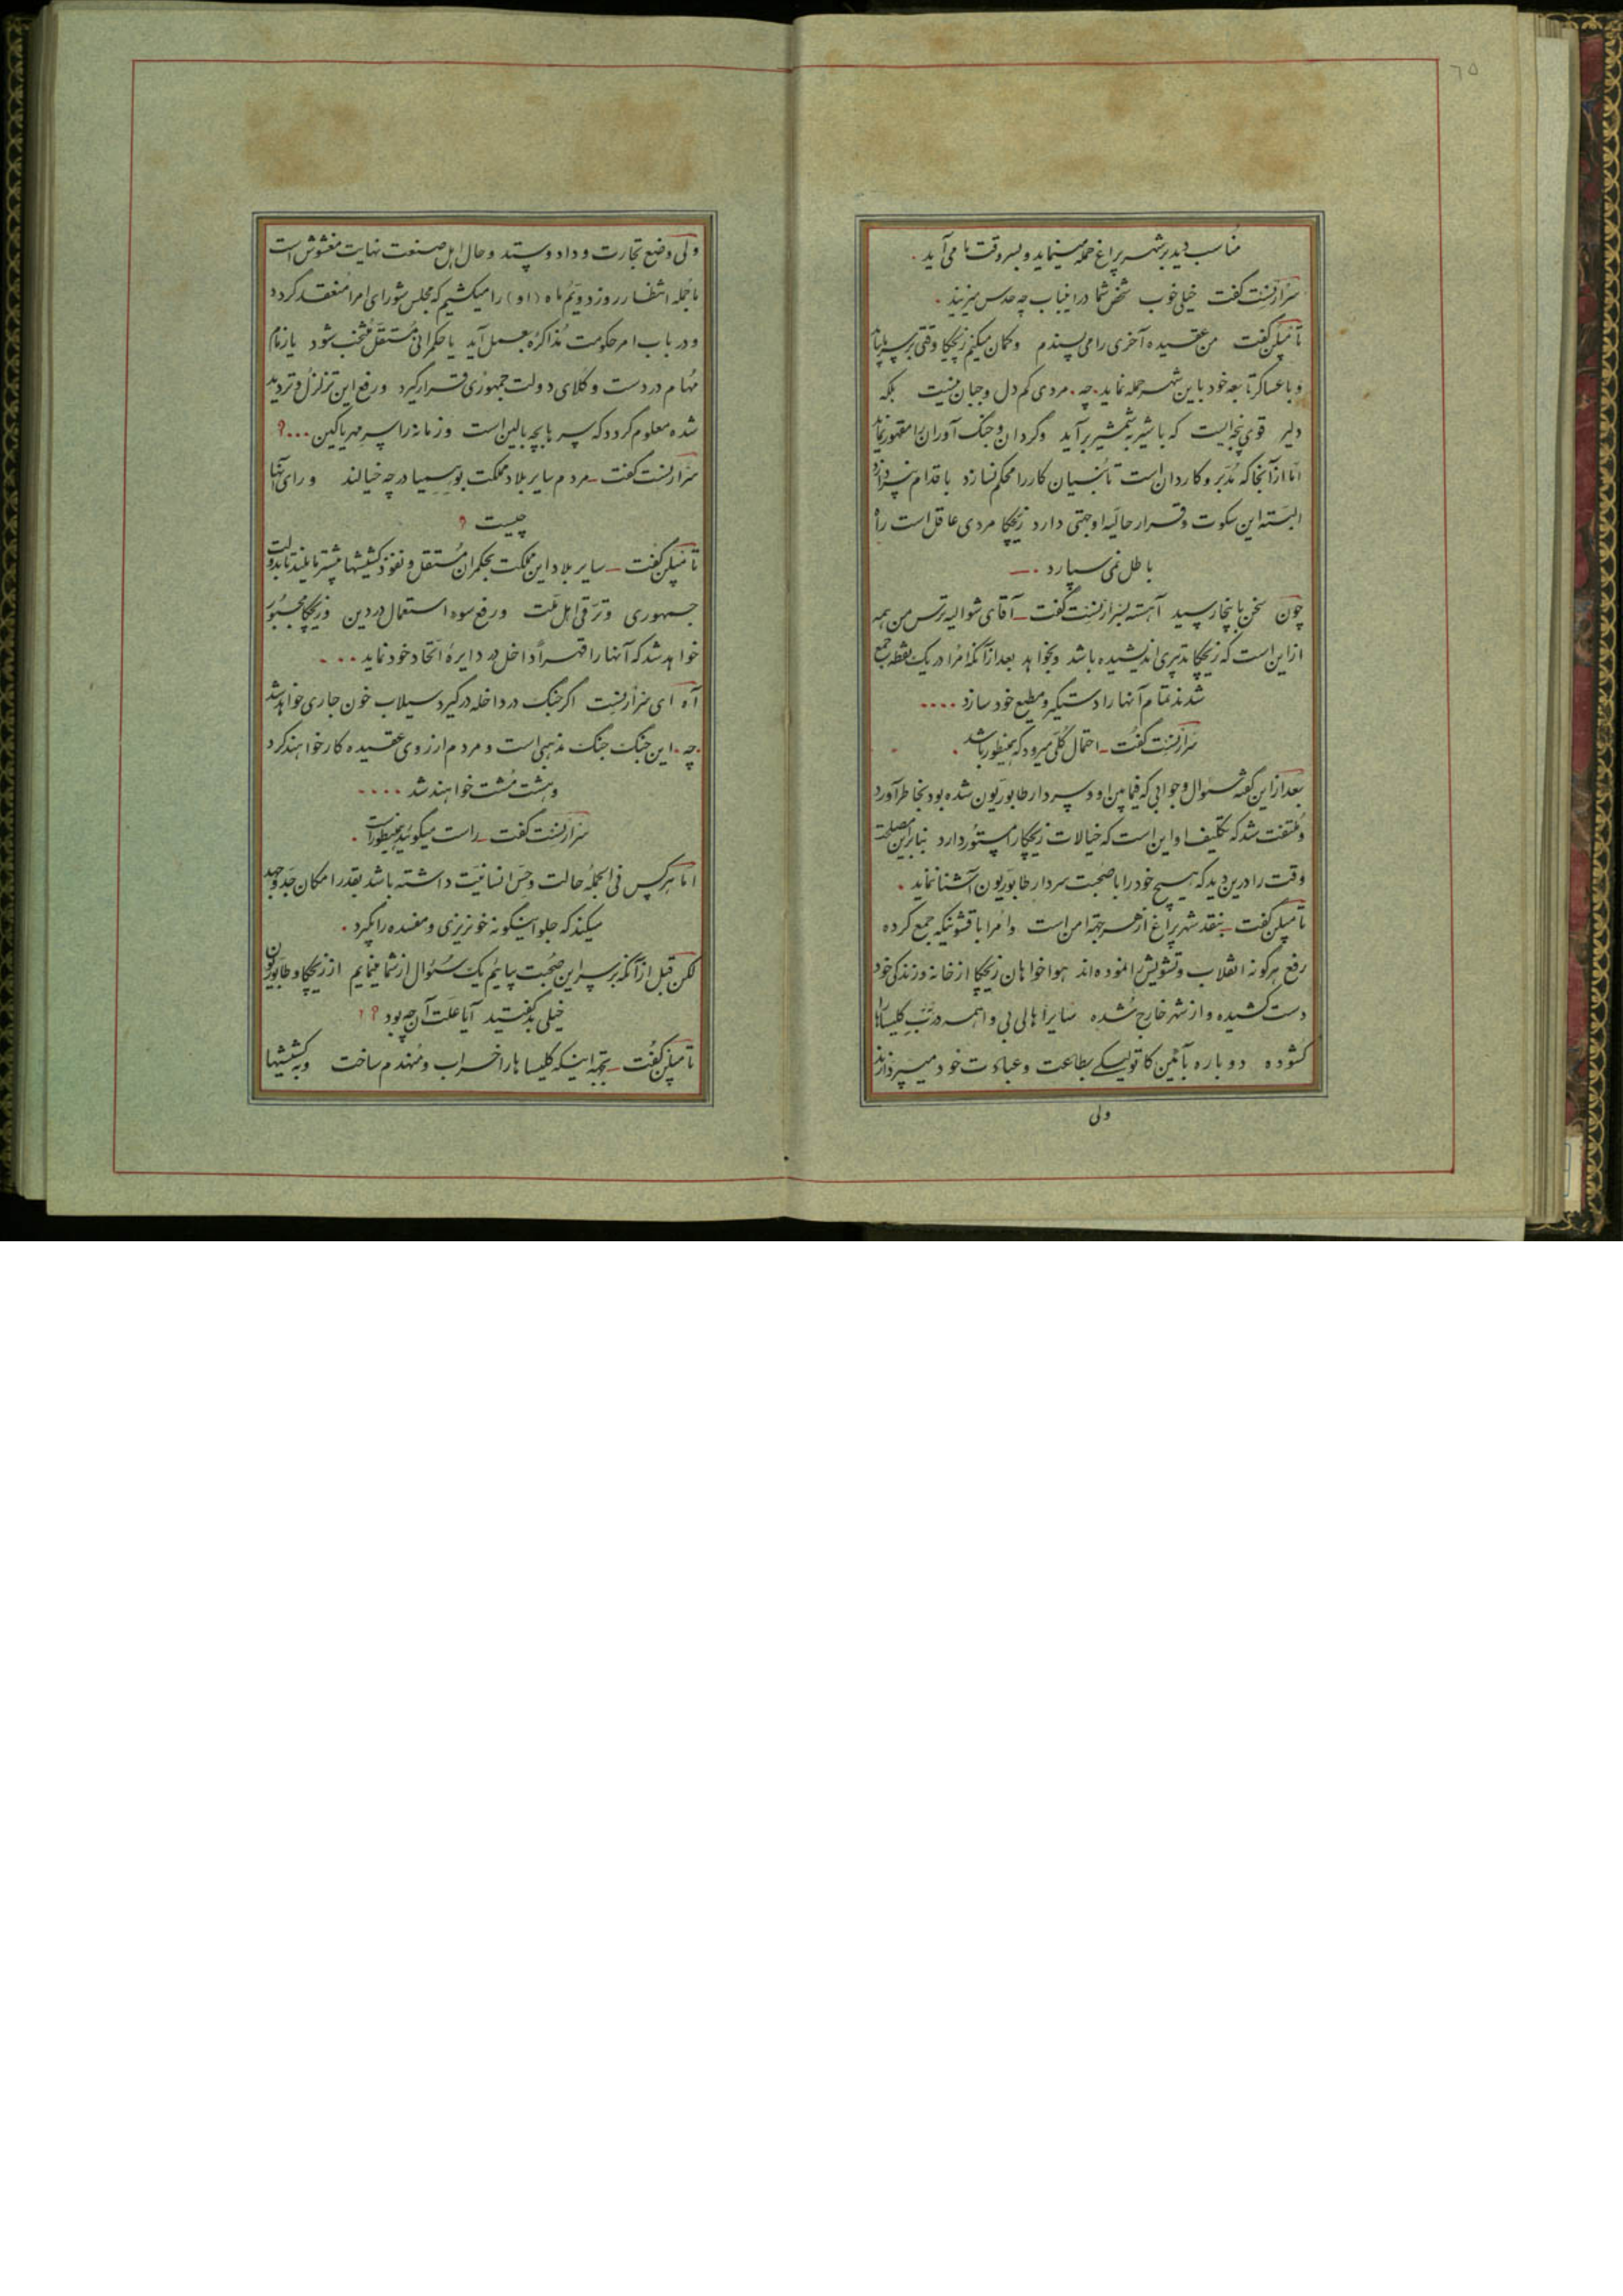 ٦٥
مناسب دید بر شهر پراغ حمله مینماید و بسر وقت ما می‌آید .
سرارنست گفت خیلی خوب شخص شما در اینباب چه حدس میزنید .
تامپلن گفت من عقیده آخری را می‌پسندم و گمان میکنم زیچکا وقتی بر سر پا بیاید
و با عساکر تابعه خود باین شهر حمله نماید . چه . مردی کم دل و جبان نیست بلکه
دلیر قوی پنجه ایست که با شیر بشمشیر برآید و گردان و جنگ آوران را مقهور نماید
اما از آنجا که مدبر و کاردان است تا بنیان کار را محکم نسازد باقدام نپردازد
البته این سکوت و قرار حالیه او جهتی دارد زیچکا مردی عاقل است راه
باطل نمی سپارد . —
چون سخن باینجا رسید آهسته بسرارنست گفت — آقای شوالیه ترس من همه
از این است که زیچکا تدبیری اندیشیده باشد و بخواهد بعد از آنکه امرا در یک نقطه جمع
شدند تمام آنها را دستگیر و مطیع خود سازد ....
سرارنست گفت — احتمال کلی میرود که همینطور باشد .
بعد از این گفته سئوال و جوابی که فیمابین او و سردار طابوریون شده بود بخاطر آورد
و ملتفت شد که تکلیف او این است که خیالات زیچکا را مستور دارد بنابراین مصلحت
وقت را درین دید که هیچ خود را با صحبت سردار طابوریون آشنا ننماید .
تامپلن گفت — بنقد شهر پراغ از هر جهة امن است و امرا با قشونیکه جمع کرده
رفع هرگونه انقلاب و تشویش را نموده‌اند هواخواهان زیچکا از خانه و زندگی خود
دست کشیده و از شهر خارج شده سایر اهالی بی واهمه درب کلیساها را
گشوده دوباره بآئین کاتولیکی بطاعت و عبادت خود میپردازند
ولی
ولی وضع تجارت و داد و ستد و حال اهل صنعت نهایت مغشوش است
ما جمله انتظار روز دویم ماه (او) را میکشیم که مجلس شورای امرا منعقد گردد
و در باب امر حکومت مذاکره بعمل آید یا حکمرانی مستقل منتخب شود یا زمام
مهام در دست وکلای دولت جمهوری قرار گیرد و رفع این تزلزل و تردید
شده معلوم گردد که سر ما بچه بالین است و زمانه را سر مهر یا کین ...؟
سرارنست گفت — مردم سایر بلاد مملکت بوهیمیا در چه خیالند و رای آنها
چیست ؟
تامپلن گفت — سایر بلاد این مملکت بحکمران مستقل و نفوذ کشیشها بیشتر مایلند تا بدولت
جمهوری و ترقی اهل ملت و رفع سوء استعمال در دین و زیچکا مجبور
خواهد شد که آنها را قهراً داخل در دایره اتحاد خود نماید ...
آه ای سرارنست اگر جنگ در داخله درگیرد سیلاب خون جاری خواهد شد
. چه . این جنگ جنگ مذهبی است و مردم از روی عقیده کار خواهند کرد
و هشت مشت خواهند شد ....
سرارنست گفت — راست میگوئید همینطور است .
اما هر کس فی الجمله حالت و حس انسانیت داشته باشد بقدر امکان جد و جهد
میکند که جلو اینگونه خونریزی و مفسده را بگیرد .
لکن قبل از آنکه بر سر این صحبت بیایم یک سئوال از شما مینمایم از زیچکا و طابوریون
خیلی بد گفتید آیا علت آن چه بود ؟؟
تامپلن گفت — بجهة اینکه کلیساها را خراب و منهدم ساخت و به کشیشها